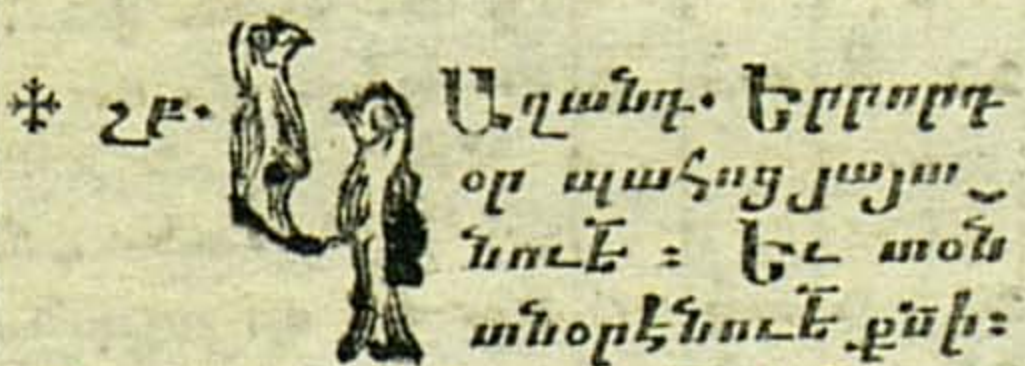 ✻ շբ. ԿԱղանդ. Երրորդ
օր պահոց յայտ֊
նուէ : Եւ տօն
տնօրէնուէ քսի: